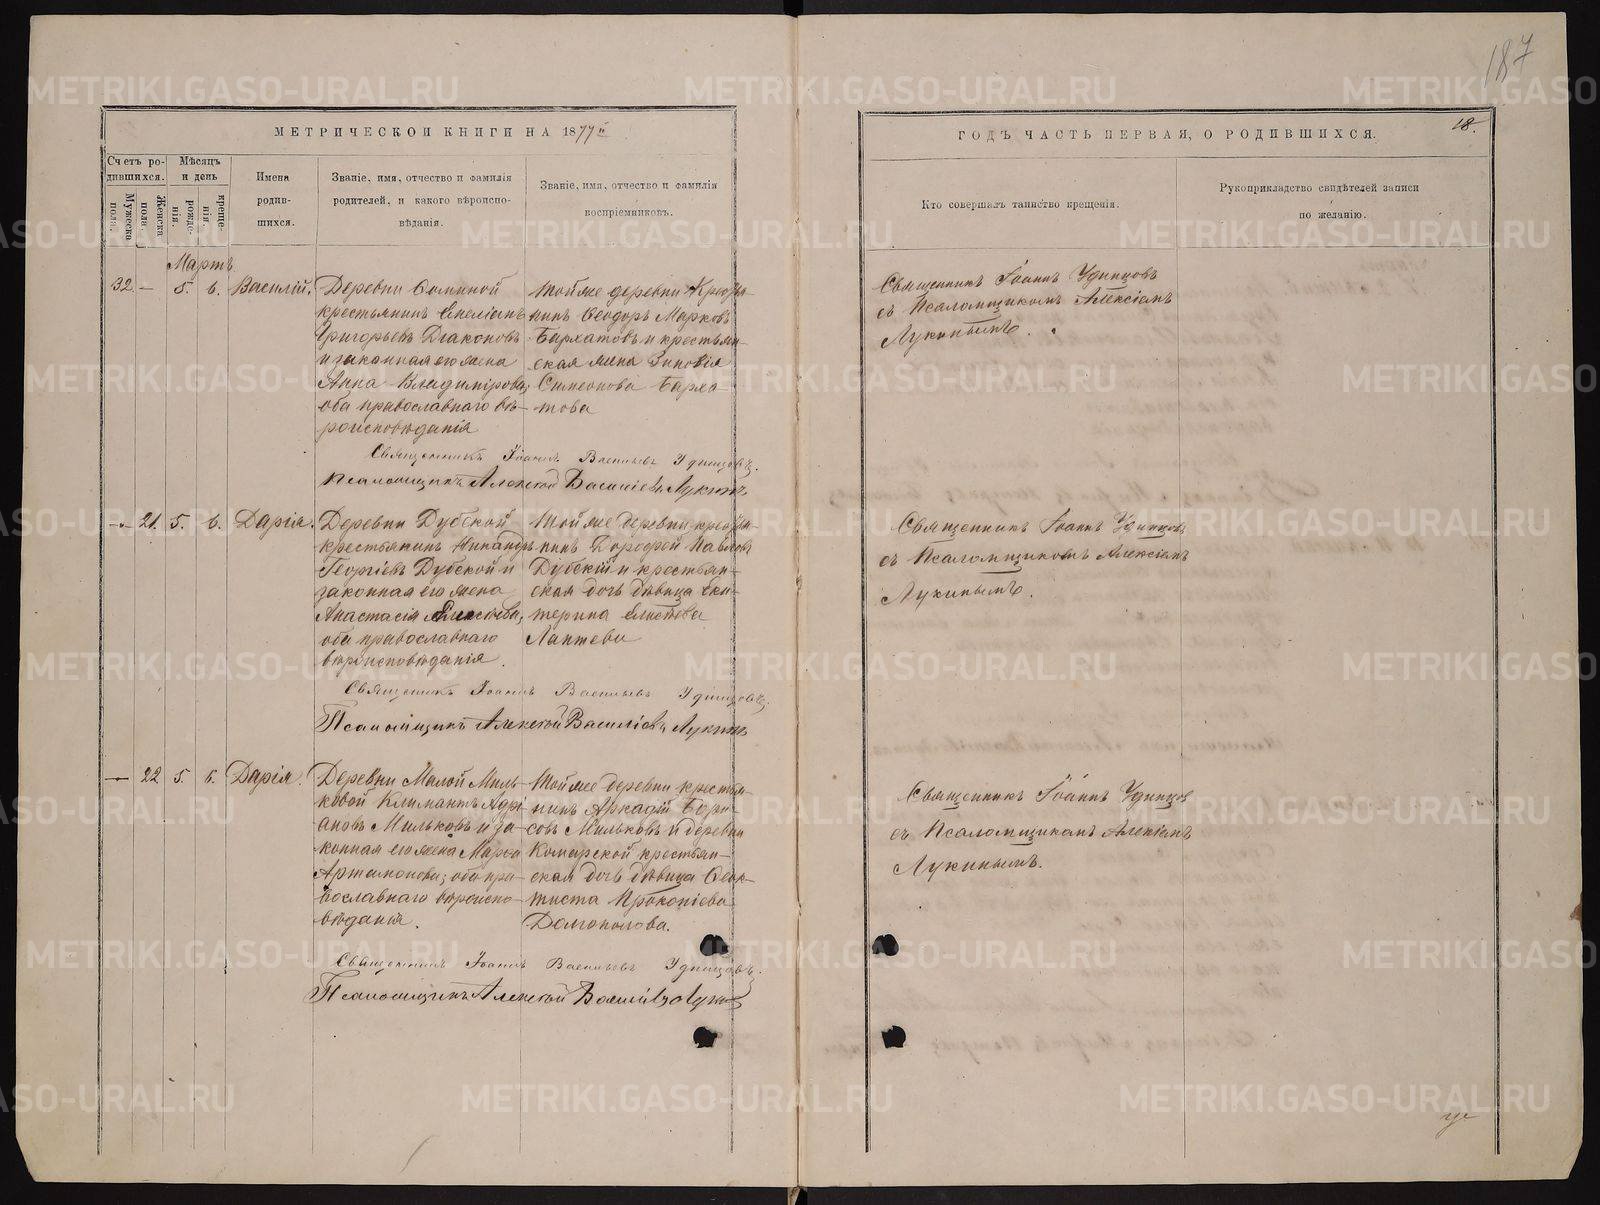 187
МЕТРИЧЕСКОЙ КНИГИ НА 1877й
ГОДЪ ЧАСТЬ ПЕРВАЯ, О РОДИВШИХСЯ.
18.
Счетъ родившихся.
Мужеска пола.
Женска пола.
Мѣсяцъ и день
рожденія.
крещенія.
Имена родившихся.
Званіе, имя, отчество и фамилія
родителей, и какого вѣроиспо-
вѣданія.
Званіе, имя, отчество и фамилія
воспріемниковъ.
Кто совершалъ таинство крещенія.
Рукоприкладство свидѣтелей записи
по желанію.
Мартъ
32 — 5. 6. Василій.
Деревни
крестьянинъ
Григорьевъ Діаконовъ
и законная его жена
Анна Владимірова,
оба православнаго вѣ-
роисповѣданія
Той же деревни Крестья-
нинъ Ѳеодоръ Марковъ
Бархатовъ и крестьян-
ская жена Зиновія
Симеонова Барха-
това
Священникъ Іоаннъ Удинцовъ
съ Псаломщикомъ Алексіемъ
Лукинымъ.
Священникъ Іоаннъ Васильевъ Удинцовъ.
Псаломщикъ Алексѣй Василіевъ Лукинъ
— 21. 5. 6. Дарія.
Деревни Дубской
крестьянинъ Никандръ
Георгіевъ Дубской и
законная его жена
Анастасія Алексѣева,
оба православнаго
вѣроисповѣданія.
Той же деревни крестья-
нинъ Дорофей Павловъ
Дубскій и крестьян-
ская дочь дѣвица Ека-
терина
Лаптева
Священникъ Іоаннъ Удинцовъ
съ Псаломщикомъ Алексіемъ
Лукинымъ.
Священникъ Іоаннъ Васильевъ Удинцовъ.
Псаломщикъ Алексѣй Василіевъ Лукинъ
— 22 5. 6. Дарія.
Деревни Малой Миль-
ковой Климантъ Адрі-
ановъ Мильковъ и за-
конная его жена Марѳа
Артамонова, оба пра-
вославнаго вѣроиспо-
вѣданія.
Той же деревни крестья-
нинъ Аркадій Бори-
совъ Мильковъ и деревни
Комарской крестьян-
ская дочь дѣвица Ѳеок-
тиста Прокопіева
Долгополова.
Священникъ Іоаннъ Удинцов
съ Псаломщикомъ Алексіемъ
Лукинымъ.
Священникъ Іоаннъ Васильевъ Удинцовъ.
Псаломщикъ Алексѣй
METRIKI.GASO-URAL.RU